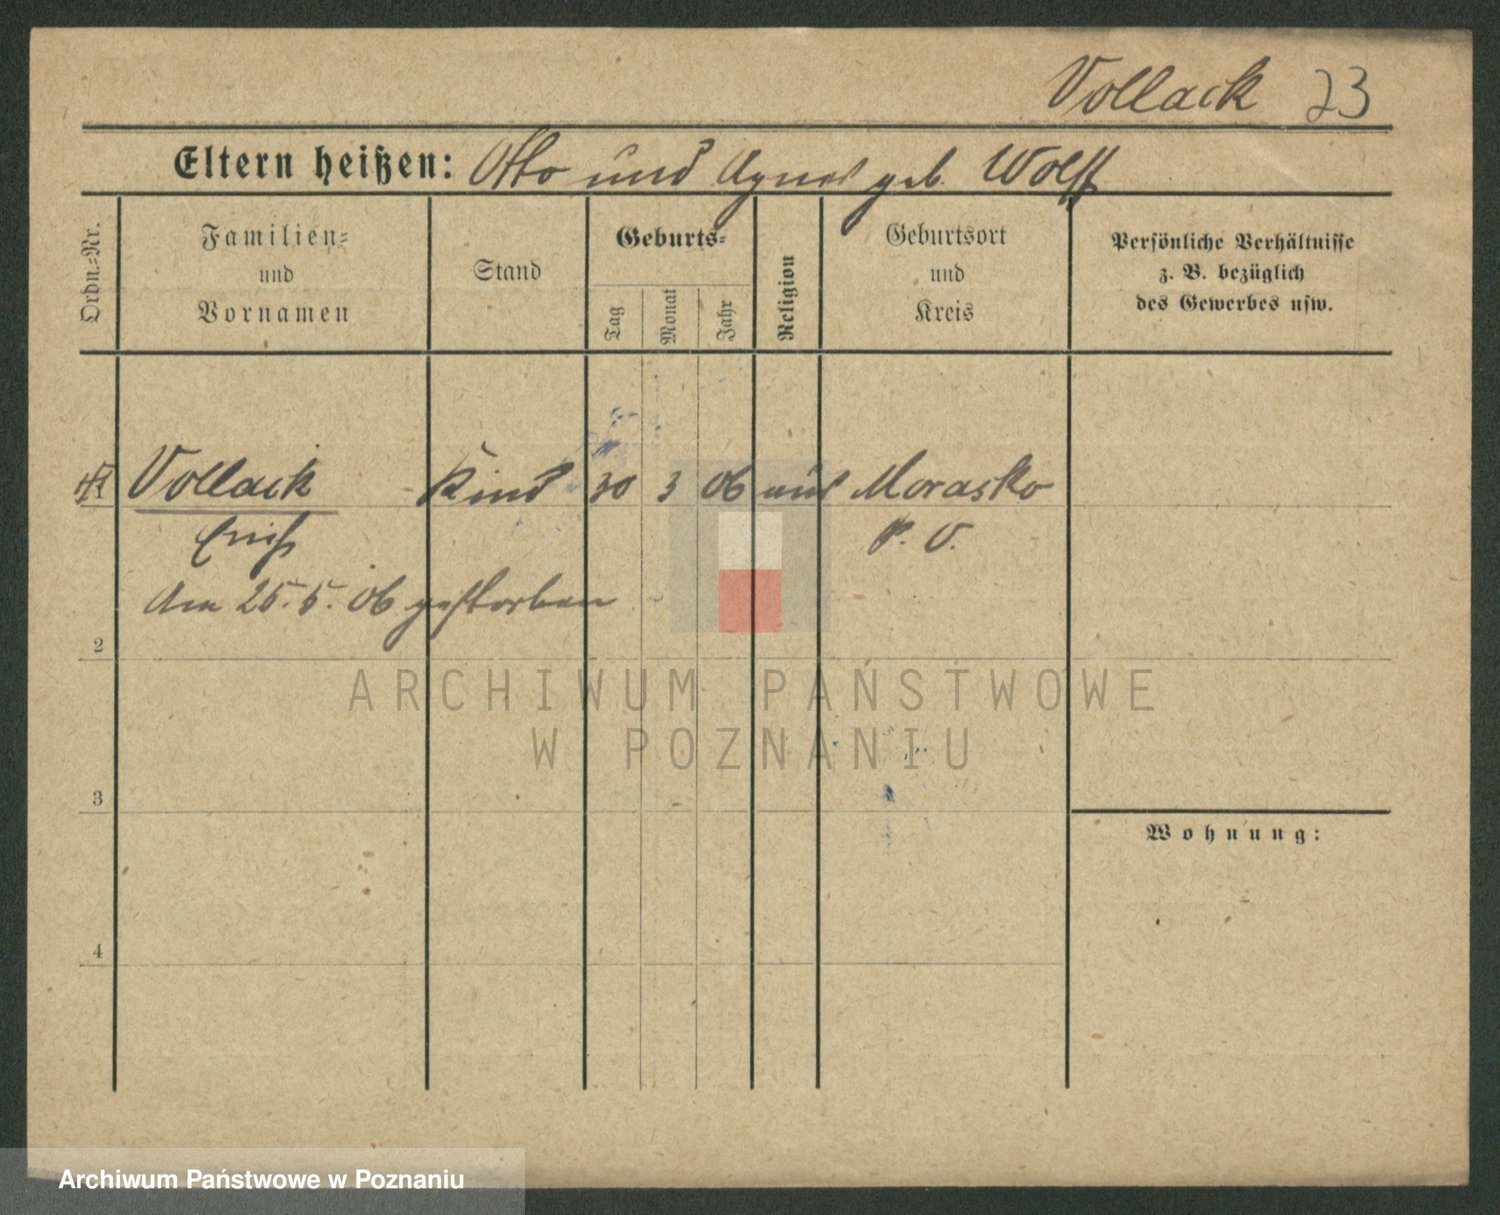 Vollack 23
Eltern heißen: Otto und Agnes geb. Wolff
Ordn.-Nr.
Familien-
und
Vornamen
Stand
Geburts-
Tag
Monat
Jahr
Religion
Geburtsort
und
Kreis
Persönliche Verhältnisse
z. B. bezüglich
des Gewerbes usw.
Vollack Kind 30 3 06 Morasko
Erich P. O.
Am 25. 5. 06 gestorben
2
3
4
Wohnung:
ARCHIWUM PAŃSTWOWE
W POZNANIU
Archiwum Państwowe w Poznaniu